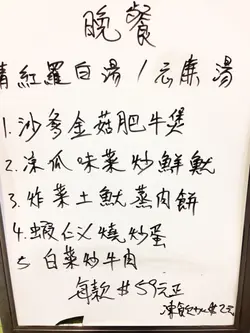 晚餐
青紅羅白湯/云康湯
1.沙爹金菇肥牛煲
2.涼瓜味菜炒鮮魷
3.炸菜土魷蒸肉餅
4.蝦仁乂燒炒蛋
5 白菜炒牛肉
每款 #59元正
凍飲加2元